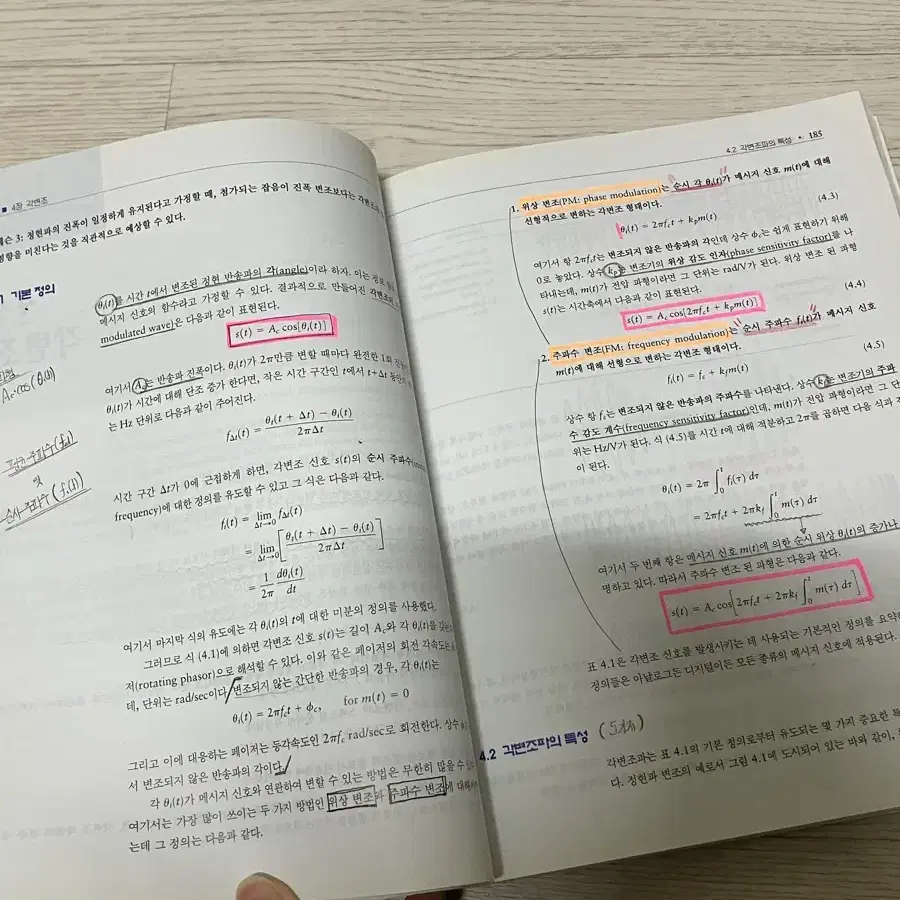 4장 각변조
슨 3: 정현파의 진폭이 일정하게 유지된다고 가정할 때, 첨가되는 잡음이 진폭 변조보다는 각변조의
영향을 미친다는 것을 직관적으로 예상할 수 있다.
기본 정의
θᵢ(t)를 시간 t에서 변조된 정현 반송파의 각(angle)이라 하자. 이는 정보
메시지 신호의 함수라고 가정할 수 있다. 결과적으로 만들어진 각변조
modulated wave)은 다음과 같이 표현된다.
s(t) = A_c cos[θᵢ(t)]
A_c cos(θᵢ(t))
여기서 A_c는 반송파 진폭이다. θᵢ(t)가 2π만큼 변할 때마다 완전한 1회
θᵢ(t)가 시간에 대해 단조 증가 한다면, 작은 시간 구간인 t에서 t+Δt 동안의
는 Hz 단위로 다음과 같이 주어진다.
f_Δt(t) = (θᵢ(t + Δt) − θᵢ(t)) / (2πΔt)
평균주파수(f_Δt)
및
순시주파수(fᵢ(t))
시간 구간 Δt가 0에 근접하게 하면, 각변조 신호 s(t)의 순시 주파수
frequency)에 대한 정의를 유도할 수 있고 그 식은 다음과 같다.
fᵢ(t) = lim_{Δt→0} f_Δt(t)
= lim_{Δt→0} [(θᵢ(t + Δt) − θᵢ(t)) / (2πΔt)]
= (1/2π) dθᵢ(t)/dt
여기서 마지막 식의 유도에는 각 θᵢ(t)의 t에 대한 미분의 정의를 사용했다.
그러므로 식 (4.1)에 의하면 각변조 신호 s(t)는 길이 A_c와 각 θᵢ(t)를
저(rotating phasor)으로 해석할 수 있다. 이와 같은 페이저의 회전 각속도는
데, 단위는 rad/sec이다. 변조되지 않는 간단한 반송파의 경우, 각 θᵢ(t)는
θᵢ(t) = 2πf_ct + ϕ_c, for m(t) = 0
그리고 이에 대응하는 페이저는 등각속도인 2πf_c rad/sec로 회전한다. 상수
서 변조되지 않은 반송파의 각이다.
각 θᵢ(t)가 메시지 신호와 연관하여 변할 수 있는 방법은 무한히 많을 수
여기서는 가장 많이 쓰이는 두 가지 방법인 위상 변조와 주파수 변조에 대해서
는데 그 정의는 다음과 같다.
4.2 각변조파의 특성 • 185
1. 위상 변조(PM: phase modulation)는 순시 각 θᵢ(t)가 메시지 신호 m(t)에 대해
선형적으로 변하는 각변조 형태이다.
θᵢ(t) = 2πf_ct + k_pm(t) (4.3)
여기서 항 2πf_ct는 변조되지 않은 반송파의 각인데 상수 ϕ_c는 쉽게 표현하기 위해
0로 놓았다. 상수 k_p는 변조기의 위상 감도 인자(phase sensitivity factor)를 나
타내는데, m(t)가 전압 파형이라면 그 단위는 rad/V가 된다. 위상 변조 된 파형
s(t)는 시간축에서 다음과 같이 표현된다.
s(t) = A_c cos[2πf_ct + k_pm(t)] (4.4)
2. 주파수 변조(FM: frequency modulation)는 순시 주파수 fᵢ(t)가 메시지 신호
m(t)에 대해 선형으로 변하는 각변조 형태이다.
fᵢ(t) = f_c + k_fm(t) (4.5)
상수 항 f_c는 변조되지 않은 반송파의 주파수를 나타낸다. 상수 k_f는 변조기의 주파
수 감도 계수(frequency sensitivity factor)인데, m(t)가 전압 파형이라면 그 단
위는 Hz/V가 된다. 식 (4.5)를 시간 t에 대해 적분하고 2π를 곱하면 다음 식과
이 된다.
θᵢ(t) = 2π ∫₀ᵗ fᵢ(τ) dτ
= 2πf_ct + 2πk_f ∫₀ᵗ m(τ) dτ
여기서 두 번째 항은 메시지 신호 m(t)에 의한 순시 위상 θᵢ(t)의 증가나
명하고 있다. 따라서 주파수 변조 된 파형은 다음과 같다.
s(t) = A_c cos[2πf_ct + 2πk_f ∫₀ᵗ m(τ) dτ]
표 4.1은 각변조 신호를 발생시키는 데 사용되는 기본적인 정의를 요약
정의들은 아날로그든 디지털이든 모든 종류의 메시지 신호에 적용된다.
4.2 각변조파의 특성
각변조파는 표 4.1의 기본 정의로부터 유도되는 몇 가지 중요한
다. 정현파 변조의 예로서 그림 4.1에 도시되어 있는 바와 같이,